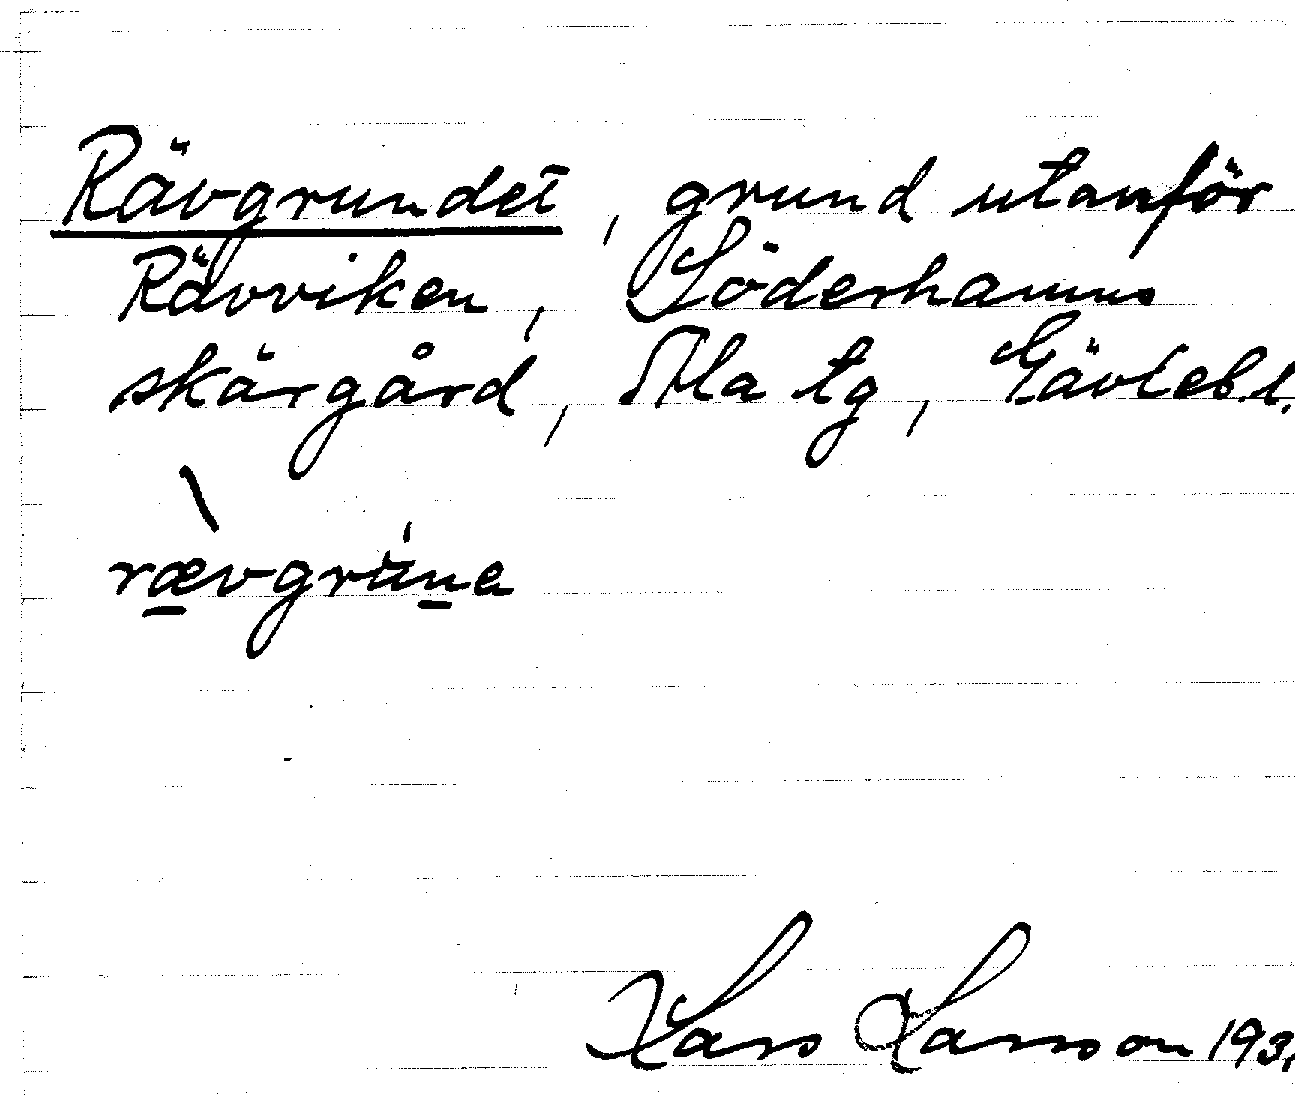 Rävgrundet, grund utanför
Rävviken, Söderhamns
skärgård, Ala tg, Gävleb. l.
rævgruna
Lars Larsson 193